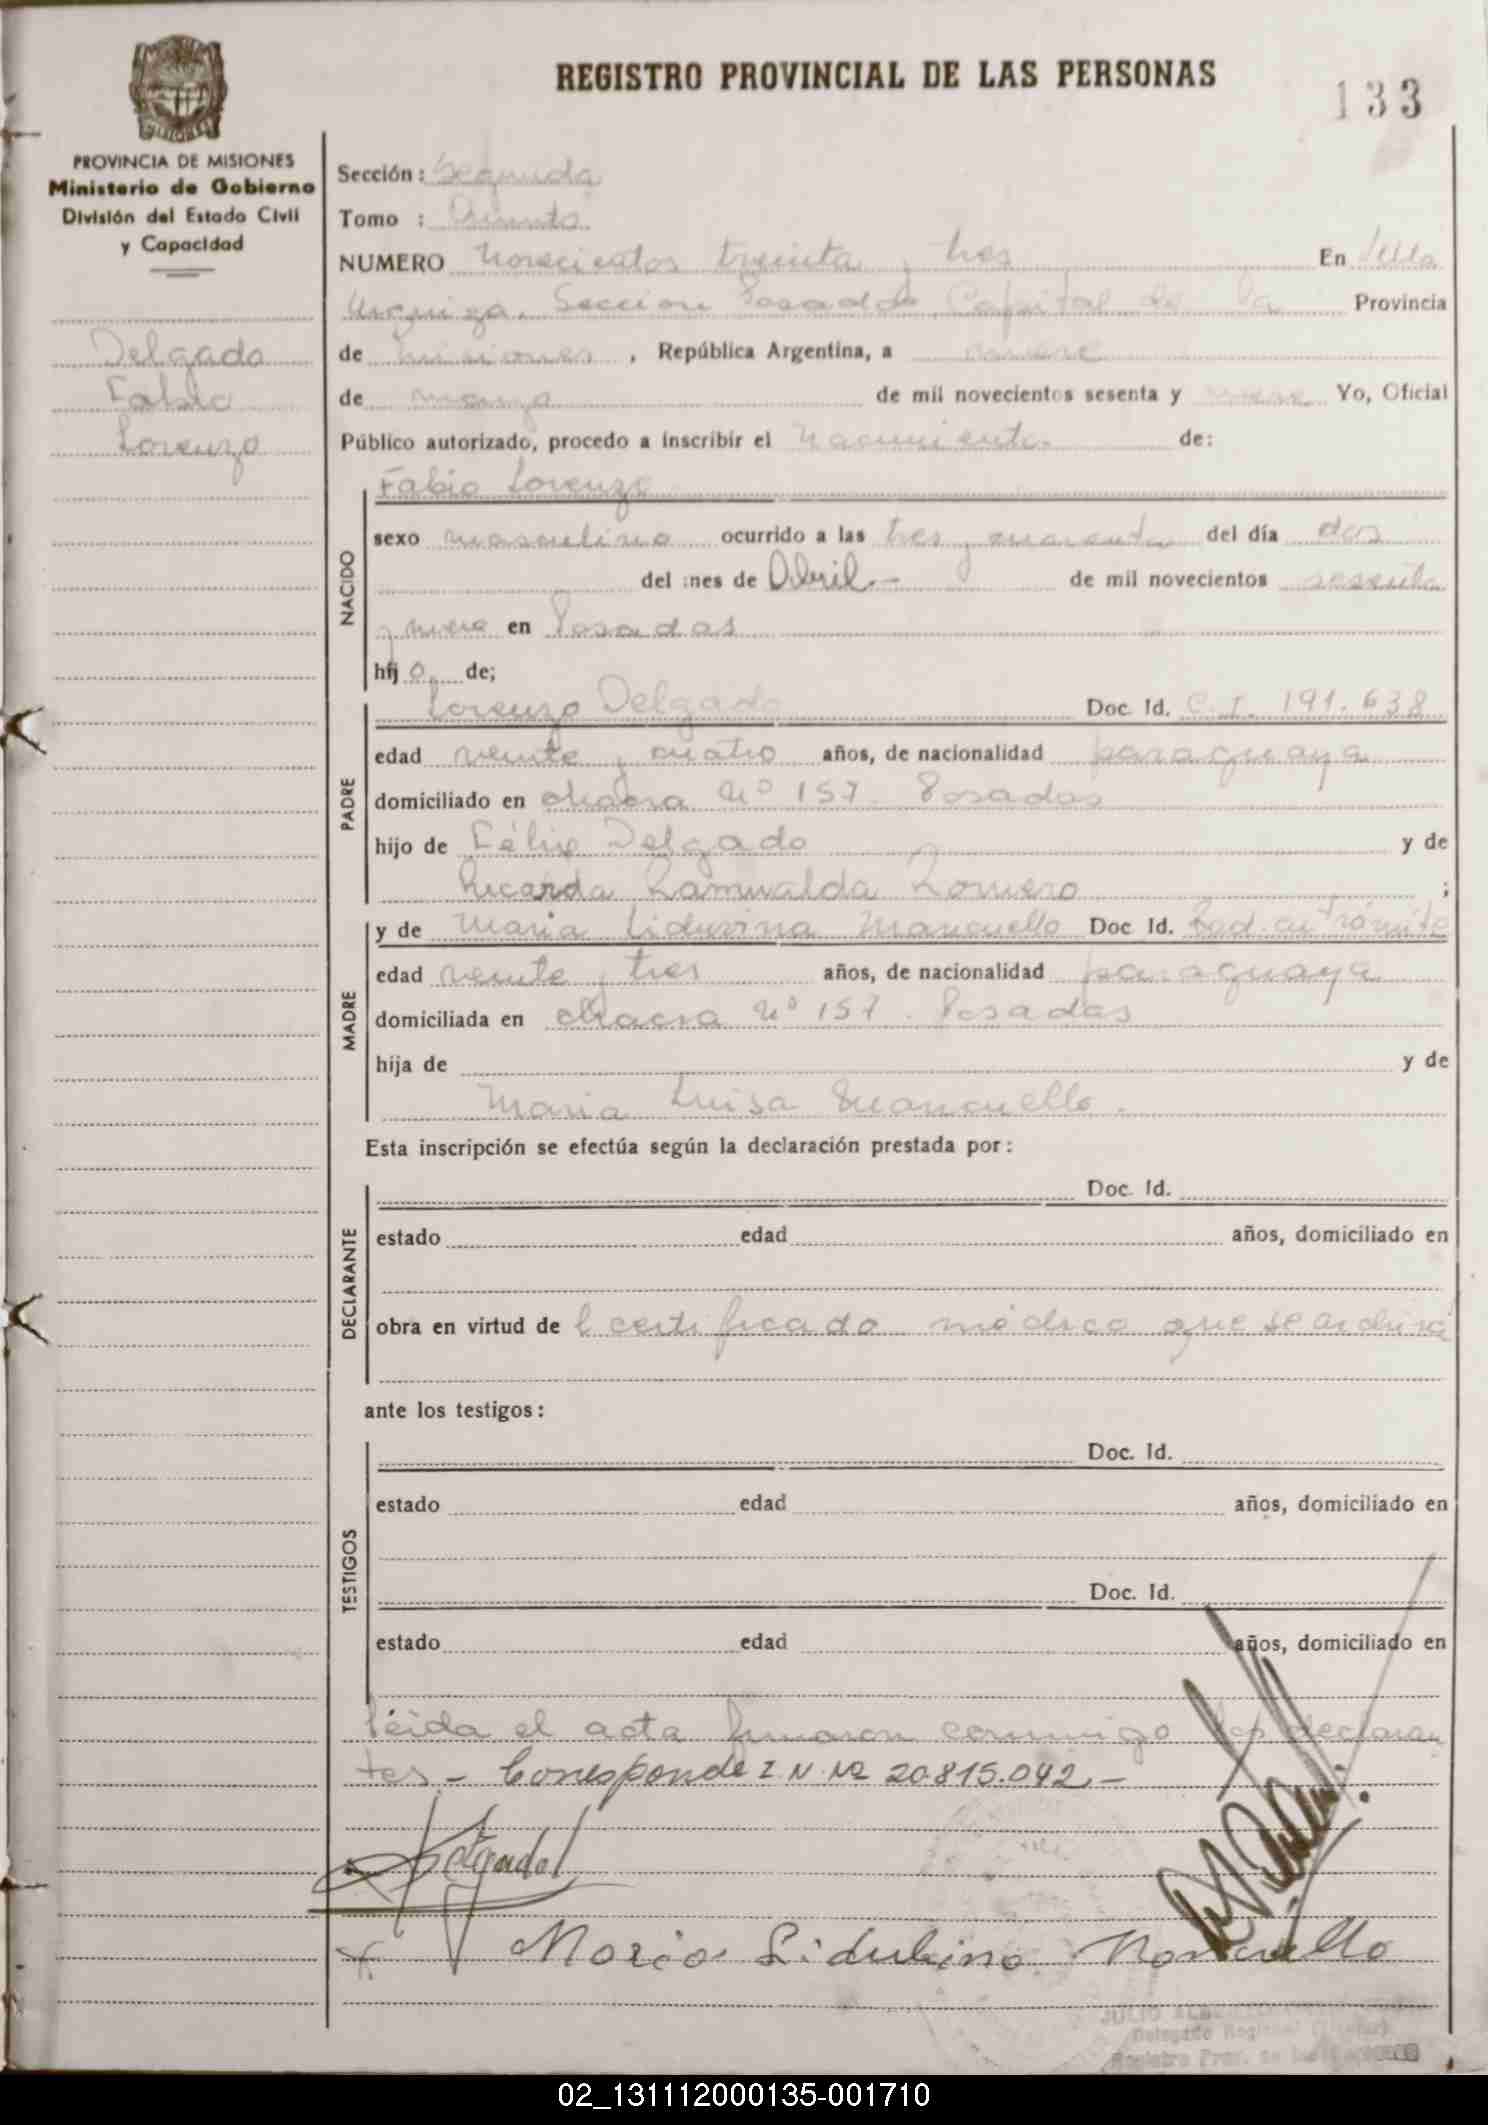 REGISTRO PROVINCIAL DE LAS PERSONAS
133
PROVINCIA DE MISIONES
Ministerio de Gobierno
División del Estado Civil
y Capacidad
Delgado
Fabio
Lorenzo
Sección: Segunda
Tomo : Quinto
NUMERO Novecientos treinta y tres En Villa
Urquiza, Sección Posadas Capital de la Provincia
de Misiones, República Argentina, a nueve
de mayo de mil novecientos sesenta y nueve Yo, Oficial
Público autorizado, procedo a inscribir el nacimiento. de:
NACIDO
Fabio Lorenzo
sexo masculino ocurrido a las tres y cuarenta del día dos
del mes de Abril.- de mil novecientos sesenta
y nueve en Posadas
hijo de;
PADRE
Lorenzo Delgado Doc. Id. C.I. 191.638
edad veinte y cuatro años, de nacionalidad paraguaya
domiciliado en chacra Nº 157. Posadas
hijo de Félix Delgado y de
Ricarda Ramualda Romero ;
MADRE
y de Maria Liduvina Mancuello Doc. Id. Rad. en trámite
edad veinte y tres años, de nacionalidad paraguaya
domiciliada en chacra Nº 157. Posadas
hija de y de
Maria Luisa Mancuello.
Esta inscripción se efectúa según la declaración prestada por:
DECLARANTE
Doc. Id.
estado edad años, domiciliado en
obra en virtud del certificado médico que se archiva
ante los testigos:
TESTIGOS
Doc. Id.
estado edad años, domiciliado en
Doc. Id.
estado edad años, domiciliado en
Léida el acta firmaron conmigo los declaran
tes - Corresponde I N Nº 20.815.042.-
Delgado
Maria Lidubina Mancuello
JULIO
Delegado Regional
Registro Prov. de las
02_131112000135-001710